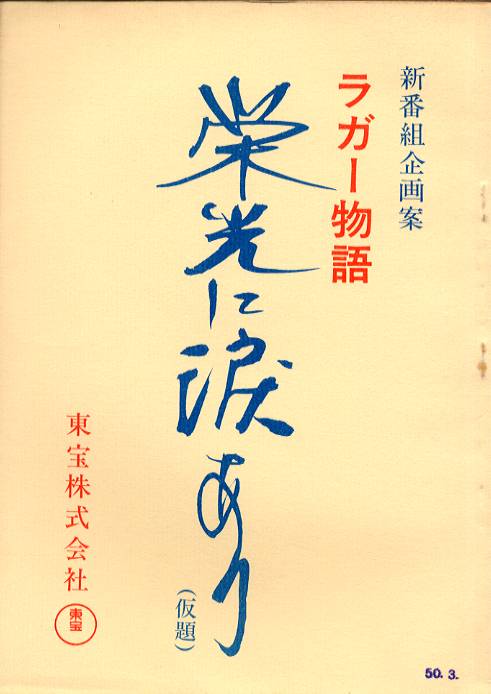 新番組企画案
ラガー物語
栄光に涙あり
(仮題)
東宝株式会社
東宝
50.3.